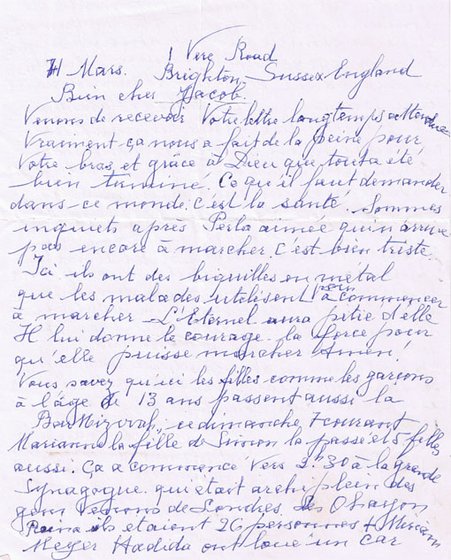 1 Vere Road
4 Mars. Brighton, Sussex England
Bien cher Jacob.
Venons de recevoir Votre lettre longtemps attendue
Vraiment ça nous a fait de la peine pour
Votre bras, et grâce à Dieu que tout a été
bien terminé. Ce qu'il faut demander
dans ce monde c'est la santé. Sommes
inquiets après Perla aimée qui n'arrive
pas encore à marcher. C'est bien triste.
Ici ils ont des béquilles en métal
que les malades utilisent pour à commencer
à marcher. L'Eternel aura pitié d'elle
Il lui donne le courage la force pour
qu'elle puisse marcher Amen!
Vous savez qu'ici les filles comme les garçons
à l'âge de 13 ans passent aussi la
Bar Mizvah, ce dimanche, 7 courant
Marianne la fille de Simon la passé et 5 filles
aussi. Ça a commencé vers 2.30 à la grande
Synagogue qui était archi plein des
gens venons de Londres, des Ohayon
Reina ils étaient 26 personnes + Meriam
Meyer Hadida ont loué un car